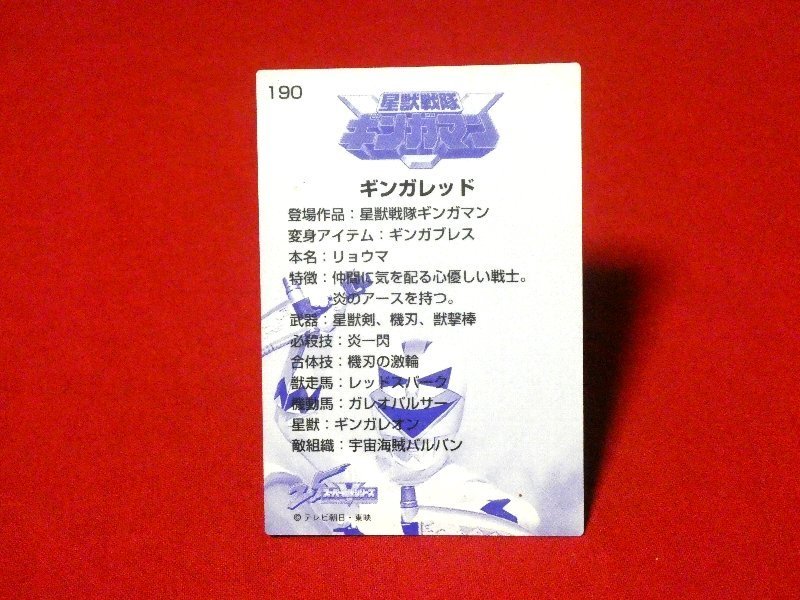 190
星獣戦隊
ギンガマン
ギンガレッド
登場作品：星獣戦隊ギンガマン
変身アイテム：ギンガブレス
本名：リョウマ
特徴：仲間に気を配る心優しい戦士。
炎のアースを持つ。
武器：星獣剣、機刃、獣撃棒
必殺技：炎一閃
合体技：機刃の激輪
獣走馬：レッドスパーク
機動馬：ガレオパルサー
星獣：ギンガレオン
敵組織：宇宙海賊バルバン
スーパー戦隊シリーズ
© テレビ朝日・東映